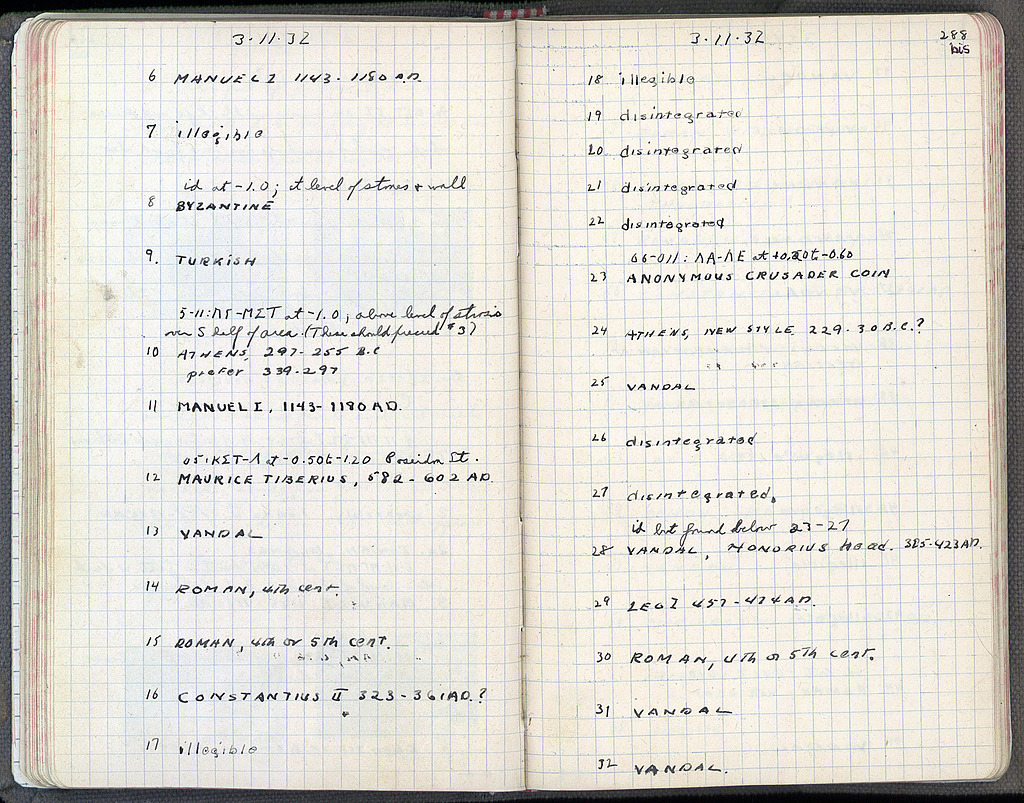 3.11.32
6 MANUEL I 1143-1180 A.D.
7 illegible
id at -1.0; at level of stones + wall
8 BYZANTINE
9. TURKISH
at -1.0; above level of
over S half of area. (These should preceed #3)
10 ATHENS, 297-255 B.C
prefer 339-297
11 MANUEL I, 1143-1180 AD.
at -0.50 to -1.20 Poseidon St.
12 MAURICE TIBERIUS, 582-602 AD.
13 VANDAL
14 ROMAN, 4th cent.
15 ROMAN, 4th or 5th cent.
16 CONSTANTIUS II 323-361 AD.?
17 illegible
3.11.32
288
bis
18 illegible
19 disintegrated
20 disintegrated
21 disintegrated
22 disintegrated
ΛΑ-ΛΕ at to -0.60
23 ANONYMOUS CRUSADER COIN
24 ATHENS, NEW STYLE, 229-30 B.C.?
25 VANDAL
26 disintegrated
27 disintegrated.
id but found below 23-27
28 VANDAL, HONORIUS Head. 385-423 AD.
29 LEO I 457-474 AD.
30 ROMAN, 4th or 5th cent.
31 VANDAL
32 VANDAL.